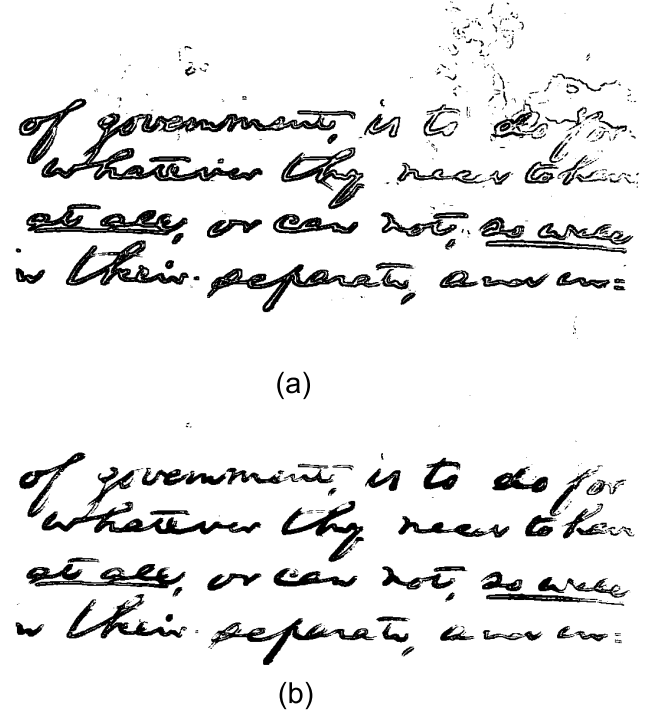 of government, is to do for
whatever they need to have
at all, or can not, so well
in their separate, and in=
(a)
of government, is to do for
whatever they need to have
at all, or can not, so well
in their separate, and in=
(b)